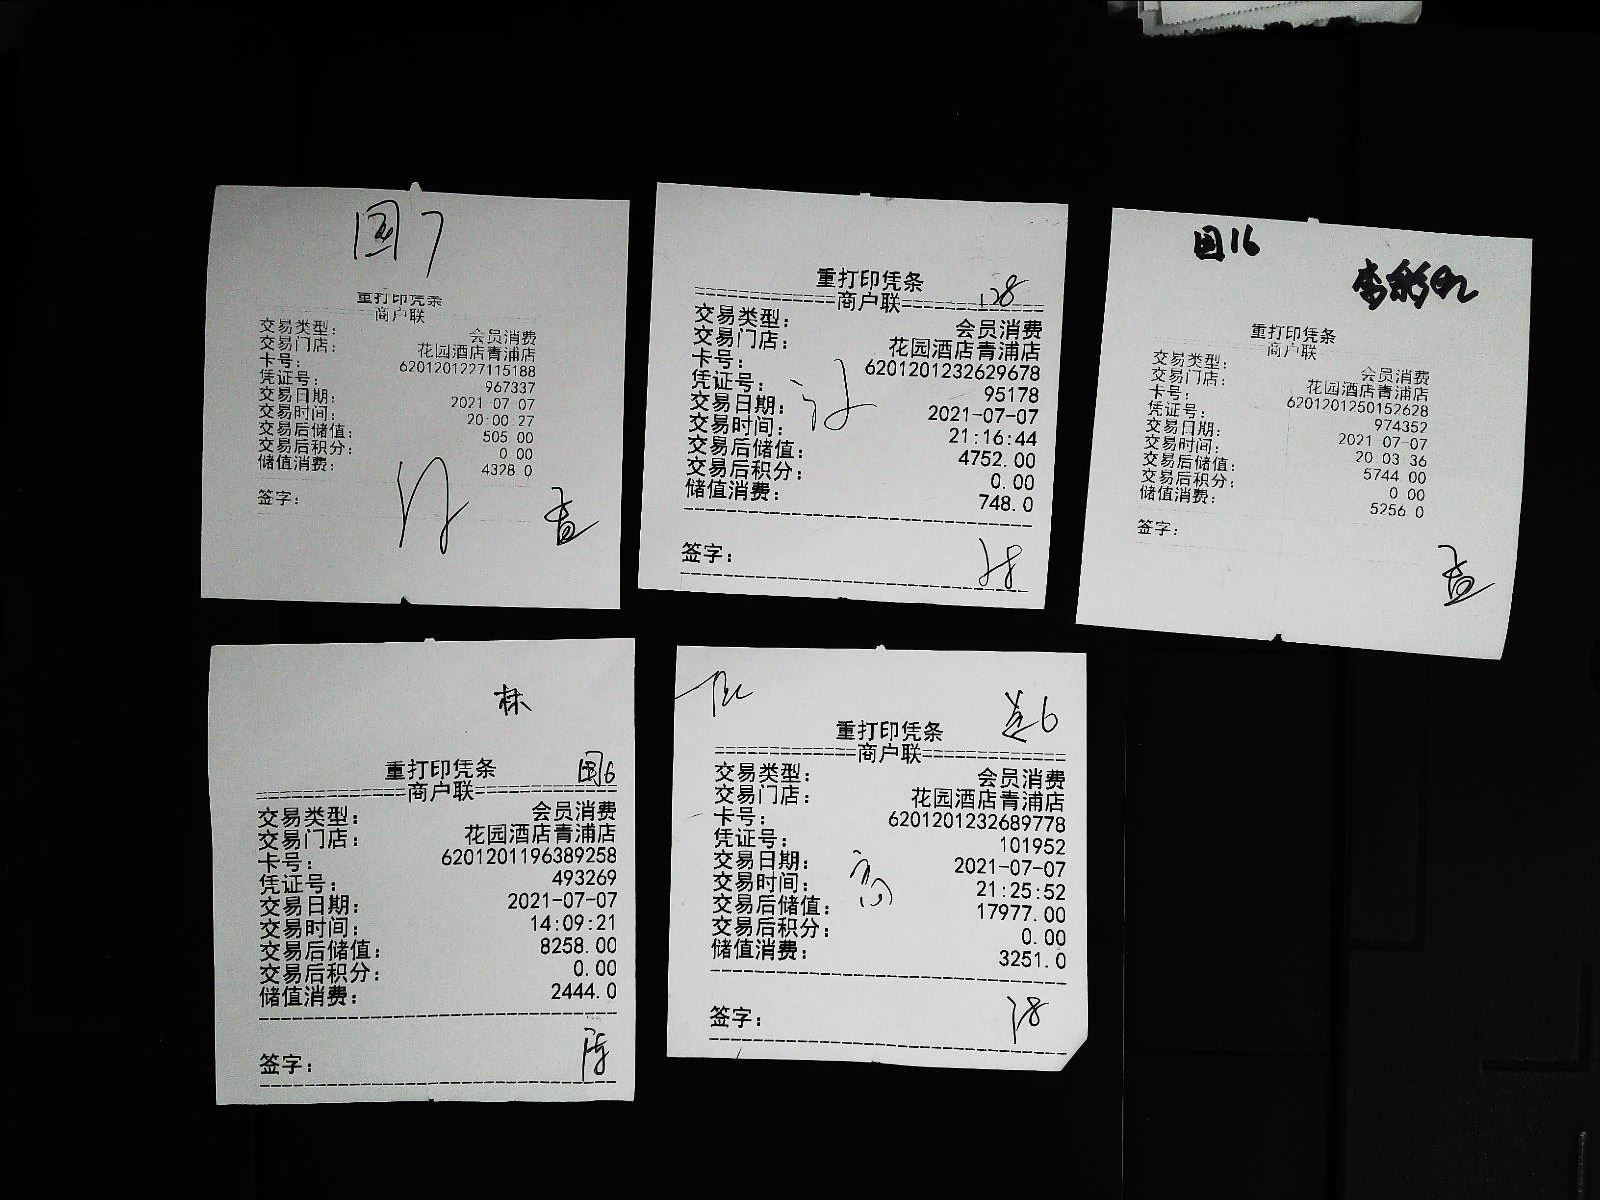 国7
重打印凭条
商户联
交易类型: 会员消费
交易门店: 花园酒店青浦店
卡号: 6201201227115188
凭证号: 967337
交易日期: 2021-07-07
交易时间: 20:00:27
交易后储值: 505.00
交易后积分: 0.00
储值消费: 4328.0
签字:
重打印凭条
============商户联============
交易类型: 会员消费
交易门店: 花园酒店青浦店
卡号: 6201201232629678
凭证号: 95178
交易日期: 2021-07-07
交易时间: 21:16:44
交易后储值: 4752.00
交易后积分: 0.00
储值消费: 748.0
签字:
国16
重打印凭条
商户联
交易类型: 会员消费
交易门店: 花园酒店青浦店
卡号: 6201201250152628
凭证号: 974352
交易日期: 2021-07-07
交易时间: 20:03:36
交易后储值: 5744.00
交易后积分: 0.00
储值消费: 5256.0
签字:
林
重打印凭条 国16
============商户联============
交易类型: 会员消费
交易门店: 花园酒店青浦店
卡号: 6201201196389258
凭证号: 493269
交易日期: 2021-07-07
交易时间: 14:09:21
交易后储值: 8258.00
交易后积分: 0.00
储值消费: 2444.0
签字:
重打印凭条
============商户联============
交易类型: 会员消费
交易门店: 花园酒店青浦店
卡号: 6201201232689778
凭证号: 101952
交易日期: 2021-07-07
交易时间: 21:25:52
交易后储值: 17977.00
交易后积分: 0.00
储值消费: 3251.0
签字: